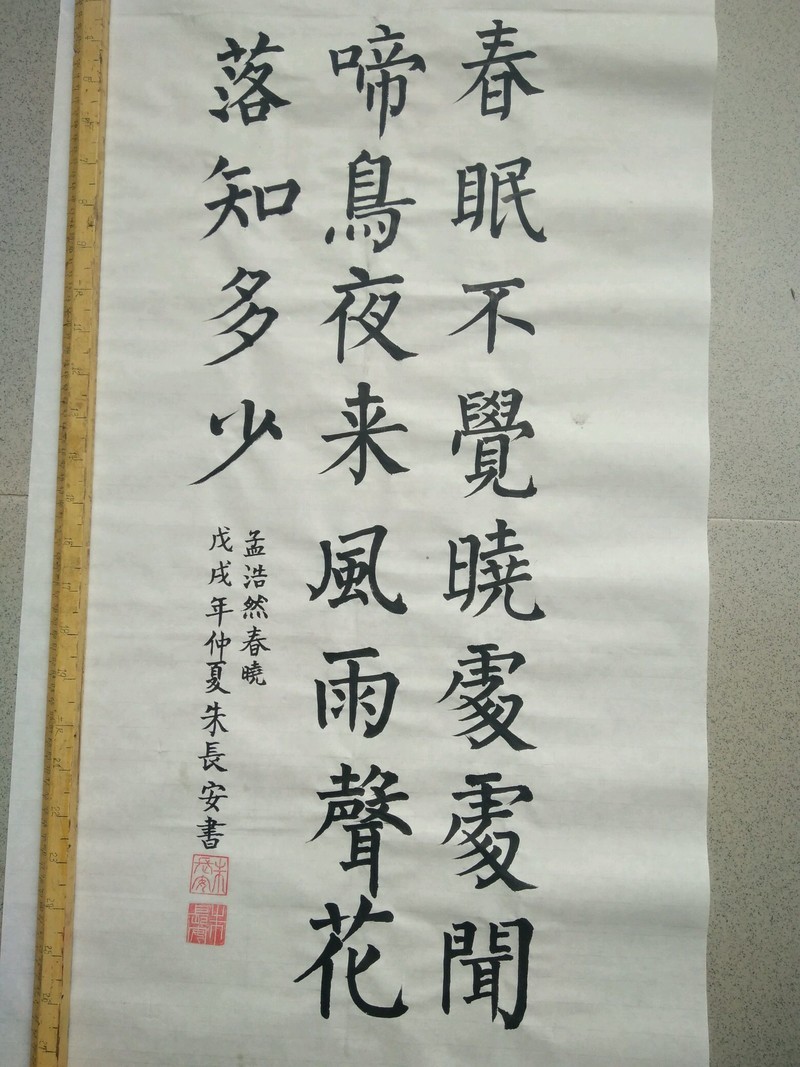 春眠不覺曉處處聞
啼鳥夜来風雨聲花
落知多少
孟浩然春曉
戊戌年仲夏朱長安書
朱長安
朱長安